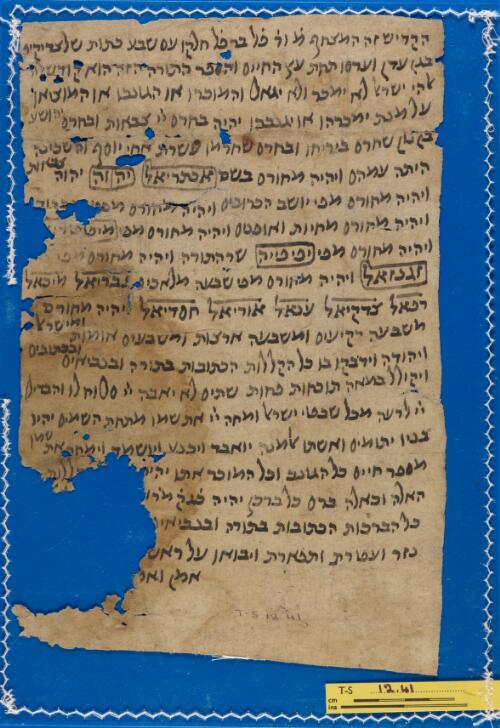 הקדיש זה המצחף
בגן עדן וערסו תחת עץ החיים והספר התורה הזה הוא קודש
אלהי ישראל לא ימכר ולא יגאל והמוכרו או הגונבו או המוציאו
על מנת ימכרהו או יגנבבו יהיה בחרם יי צבאות ובחרם יהושע
בן נון שחרם ביריחו ובחרם שחרמו עשרת אחי יוסף והשכינה
היתה עמהם ויהיה מחורם בשם אכתריאל יה וה יהוה צבאות
ויהיה מחורם מפי יושב הכרובים ויהיה מחורם מפי
ויהיה מחורם מחיות ואופנים ויהיה מחורם מפי
ויהיה מחורם מפי יפיפייה שר התורה ויהיה מחורם מפי
זגנזאל ויהיה מחורם מפי שבעה מלאכים גבריאל מיכאל
רפאל צדקיאל ענאל אוריאל חסדיאל ויהיה מחורם
משבעה רקיעים ומשבעה ארצות ומשבעים אומות ומישראל
ויהודה וידבקו בו כל הקללות הכתובות בתורה ובנביאים ובכתובים
ויקולל במאה תוכחות פחות שתים לא יאבה יי סלוח לו והבדילו
יי לרעה מכל שבטי ישראל ומחה יי את שמו מתחת השמים יהיו
בניו יתומים ואשתו אלמנה יואבד ויכנע וישמד וימחה את שמו
מספר חיים כל הגונב וכל המוכר אתו יהיה
האלה וכאלה ברם כל ברכן יהיה
כל הברכות הכתובות בתורה ובנביאים
נזר ועטרת ותפארת ויבואן על ראש
אמן
T-S 12.41
T-S 12.41
cm
ins